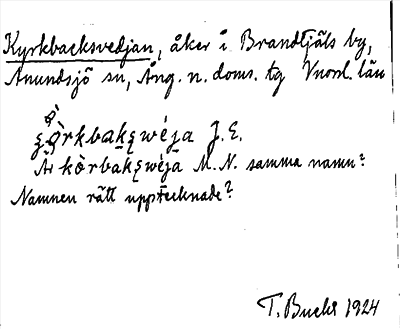 Kyrkbacksvedjan, åker i Brandtjäls by,
Anundsjö sn, Ång. n. doms. tg Vnorrl. län
J. E.
Är kòrbakswéja M. N. samma namn?
Namnen rätt upptecknade?
T. Bucht 1924